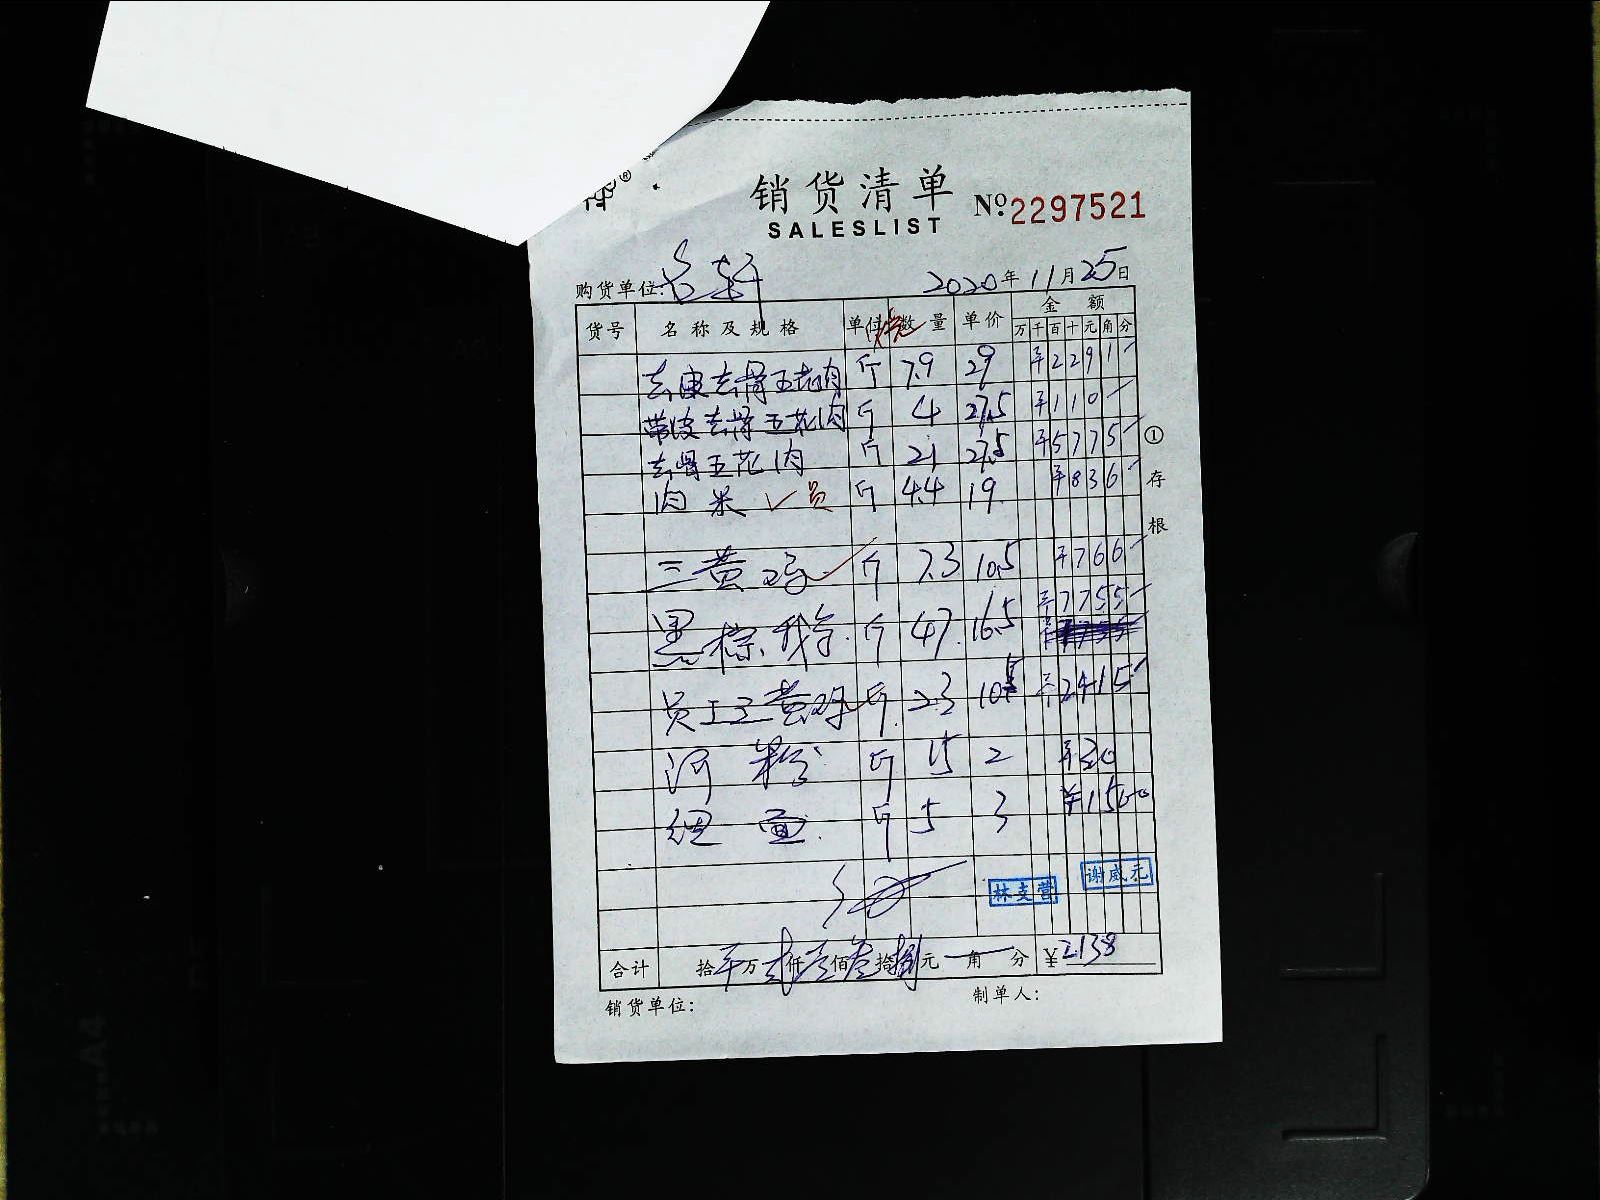 销货清单
SALESLIST
№ 2297521
购货单位: 名轩 2020年11月25日
货号 名称及规格 单位 数量 单价 金额
万千百十元角分
去皮去骨五花肉 斤 7.9 29 ¥2291
带皮去骨五花肉 斤 4 27.5 ¥110
去骨五花肉 斤 21 27.5 ¥5775
肉米 ✓员 斤 4.4 19 ¥836
三黄鸡 斤 7.3 10.5 ¥766
黑棕鹅 斤 47 16.5 ¥7755
员工三黄鸡 斤 23 10.5 ¥2415
河粉 斤 15 2 ¥30
细面 斤 5 3 ¥1500
林支营 谢威元
合计 拾 万贰仟壹佰叁拾捌元 角 分 ¥2138
销货单位: 制单人:
①存根